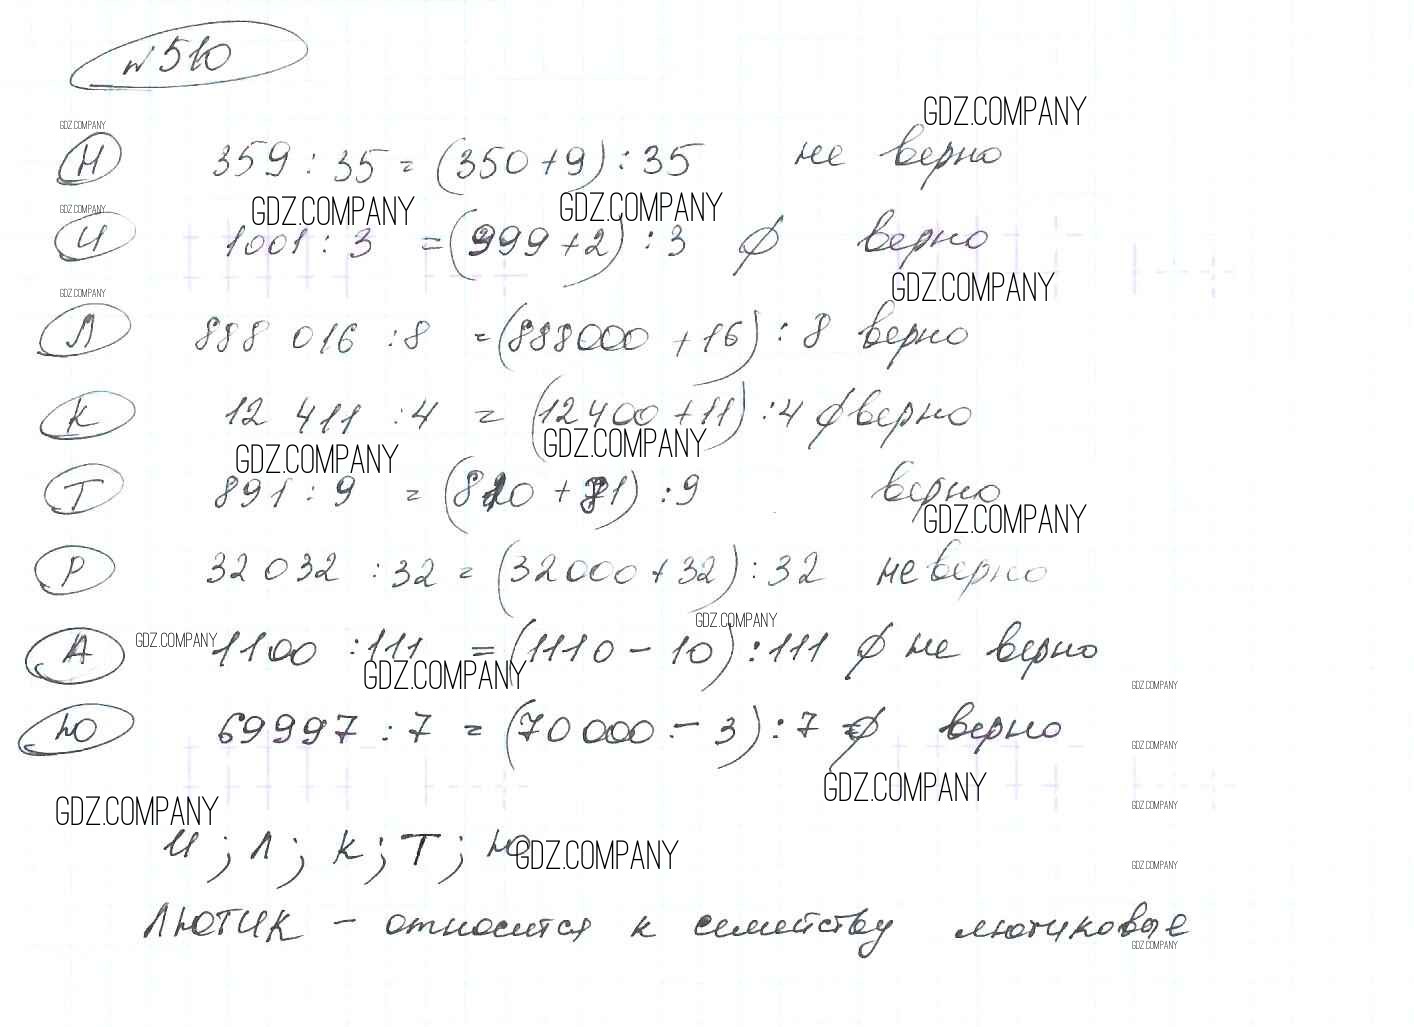 № 510
GDZ.COMPANY
GDZ.COMPANY
Н 359 : 35 = (350 + 9) : 35 не верно
GDZ.COMPANY GDZ.COMPANY GDZ.COMPANY
И 1001 : 3 = (999 + 2) : 3 верно
GDZ.COMPANY
GDZ.COMPANY
Л 888 016 : 8 = (888000 + 16) : 8 верно
К 12 411 : 4 = (12400 + 11) : 4 верно
GDZ.COMPANY GDZ.COMPANY
Т 891 : 9 = (810 + 81) : 9 верно
GDZ.COMPANY
Р 32 032 : 32 = (32000 + 32) : 32 не верно
GDZ.COMPANY
GDZ.COMPANY
А 1100 : 111 = (1110 - 10) : 111 не верно
GDZ.COMPANY
GDZ.COMPANY
Ю 69997 : 7 = (70 000 - 3) : 7 верно
GDZ.COMPANY
GDZ.COMPANY
GDZ.COMPANY GDZ.COMPANY
И ; Л ; К ; Т ; Ю
GDZ.COMPANY GDZ.COMPANY
ЛЮТИК - относится к семейству лютиковые
GDZ.COMPANY